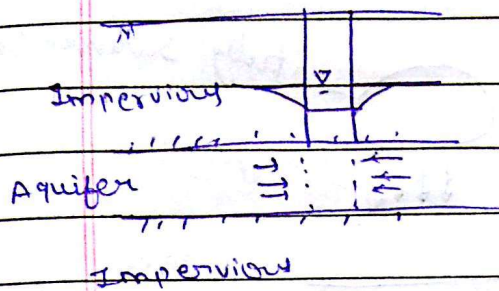 Impervious
Aquifer
Impervious